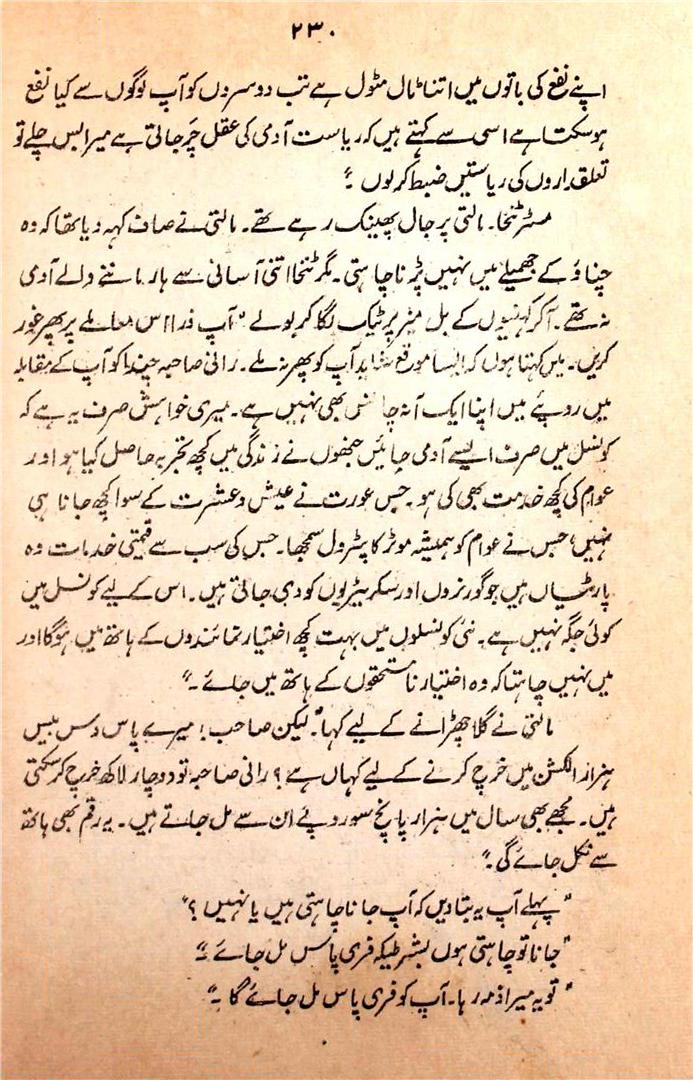 ۲۳۰
اپنے نفع کی باتوں میں اتنا ٹال مٹول ہے تب دوسروں کو آپ لوگوں سے کیا نفع
ہوسکتا ہے اسی سے کہتے ہیں کہ ریاست آدمی کی عقل چَر جاتی ہے میرا بس چلے تو
تعلقداروں کی ریاستیں ضبط کرلوں ۔“
مسٹر ٹنخا۔ مالتی پر جال پھینک رہے تھے۔ مالتی نے صاف کہہ دیا تھا کہ وہ
چناؤ کے جھمیلے میں نہیں پڑنا چاہتی۔ مگر ٹنخا اتنی آسانی سے ہار ماننے والے آدمی
نہ تھے۔ آکر کہنیوں کے بل میز پر ٹیک لگا کر بولے ”آپ ذرا اس معاملے پر پھر غور
کریں۔ میں کہتا ہوں کہ ایسا موقع شاید آپ کو پھر نہ ملے۔ رانی صاحبہ چندا کو آپ کے مقابلہ
میں روپئے میں اپنا ایک آنہ چانس بھی نہیں ہے۔ میری خواہش صرف یہ ہے کہ
کونسل میں صرف ایسے آدمی جائیں جنھوں نے زندگی میں کچھ تجربہ حاصل کیا ہو اور
عوام کی کچھ خدمت بھی کی ہو۔ جس عورت نے عیش و عشرت کے سوا کچھ جانا ہی
نہیں، جس نے عوام کو ہمیشہ موٹر کا پٹرول سمجھا۔ جس کی سب سے قیمتی خدمات وہ
پارٹیاں ہیں جو گورنروں اور سکریٹریوں کو دی جاتی ہیں۔ اس کے لیے کونسل میں
کوئی جگہ نہیں ہے۔ نئی کونسلوں میں بہت کچھ اختیار نمائندوں کے ہاتھ میں ہوگا اور
میں نہیں چاہتا کہ وہ اختیار نامستحقوں کے ہاتھ میں جائے ۔“
مالتی نے گلا چھڑانے کے لیے کہا۔ ”لیکن صاحب! میرے پاس دس بیس
ہزار الکشن میں خرچ کرنے کے لیے کہاں ہے؟ رانی صاحبہ تو دوچار لاکھ خرچ کرسکتی
ہیں۔ مجھے بھی سال میں ہزار پانچ سو روپئے ان سے مل جاتے ہیں۔ یہ رقم بھی ہاتھ
سے نکل جائے گی ۔“
”پہلے آپ یہ بتادیں کہ آپ جانا چاہتی ہیں یا نہیں؟“
”جانا تو چاہتی ہوں بشرطیکہ فری پاس مل جائے ۔“
”تو یہ میرا ذمہ رہا۔ آپ کو فری پاس مل جائے گا ۔“